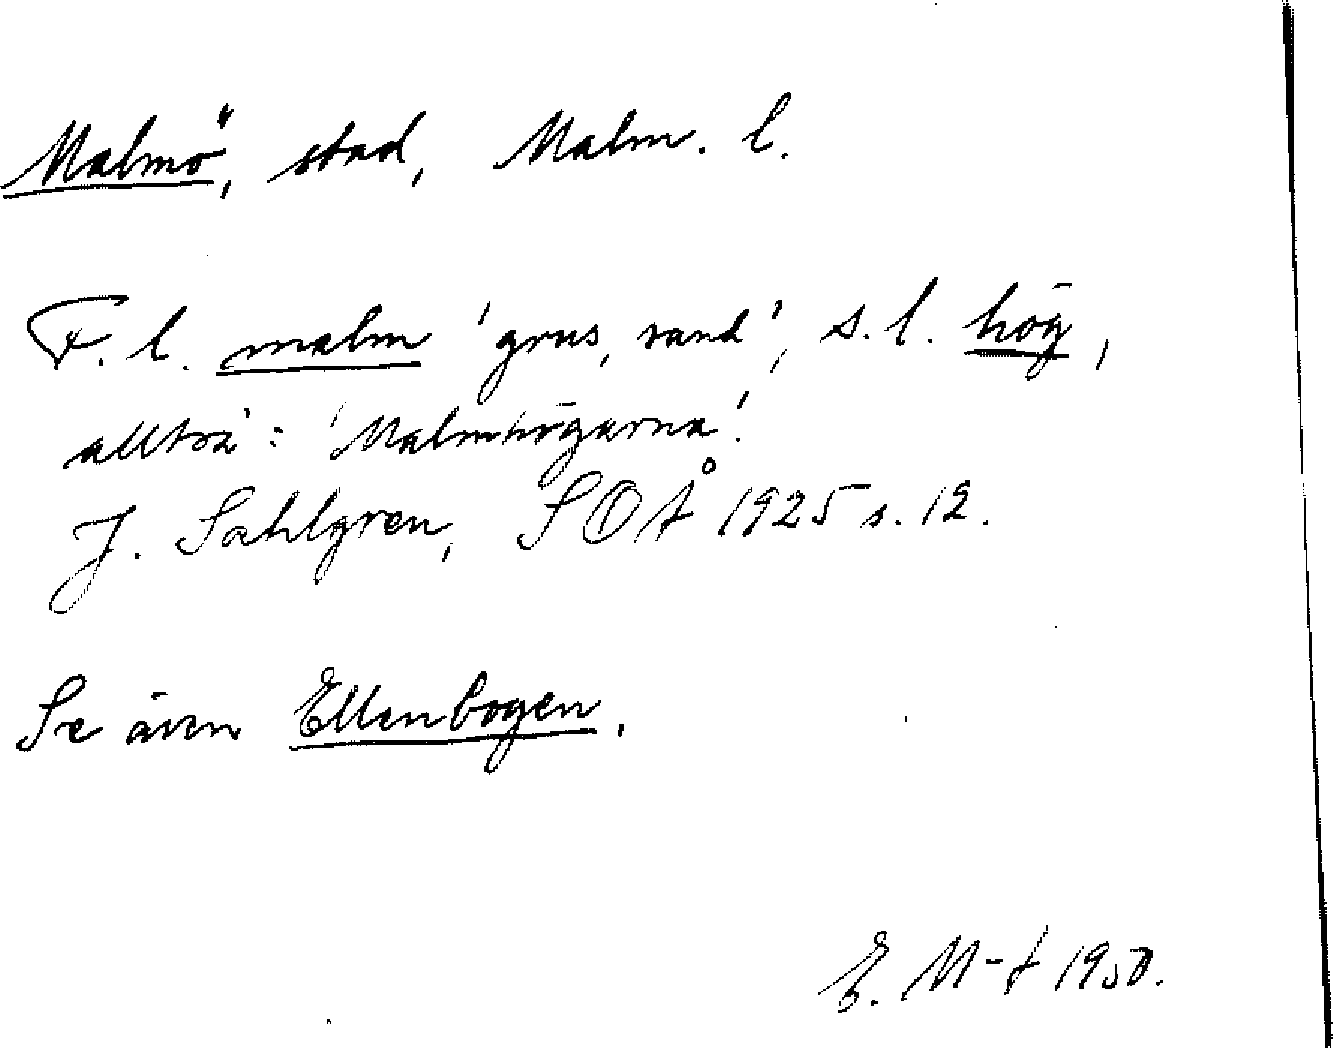 Malmö, stad, Malm. l.
F. l. malm 'grus, sand', s. l. hög,
alltså: 'Malmhögarna'.
J. Sahlgren, SOÅ 1925 s. 12.
Se även Ellenbogen.
E. M-t 1950.